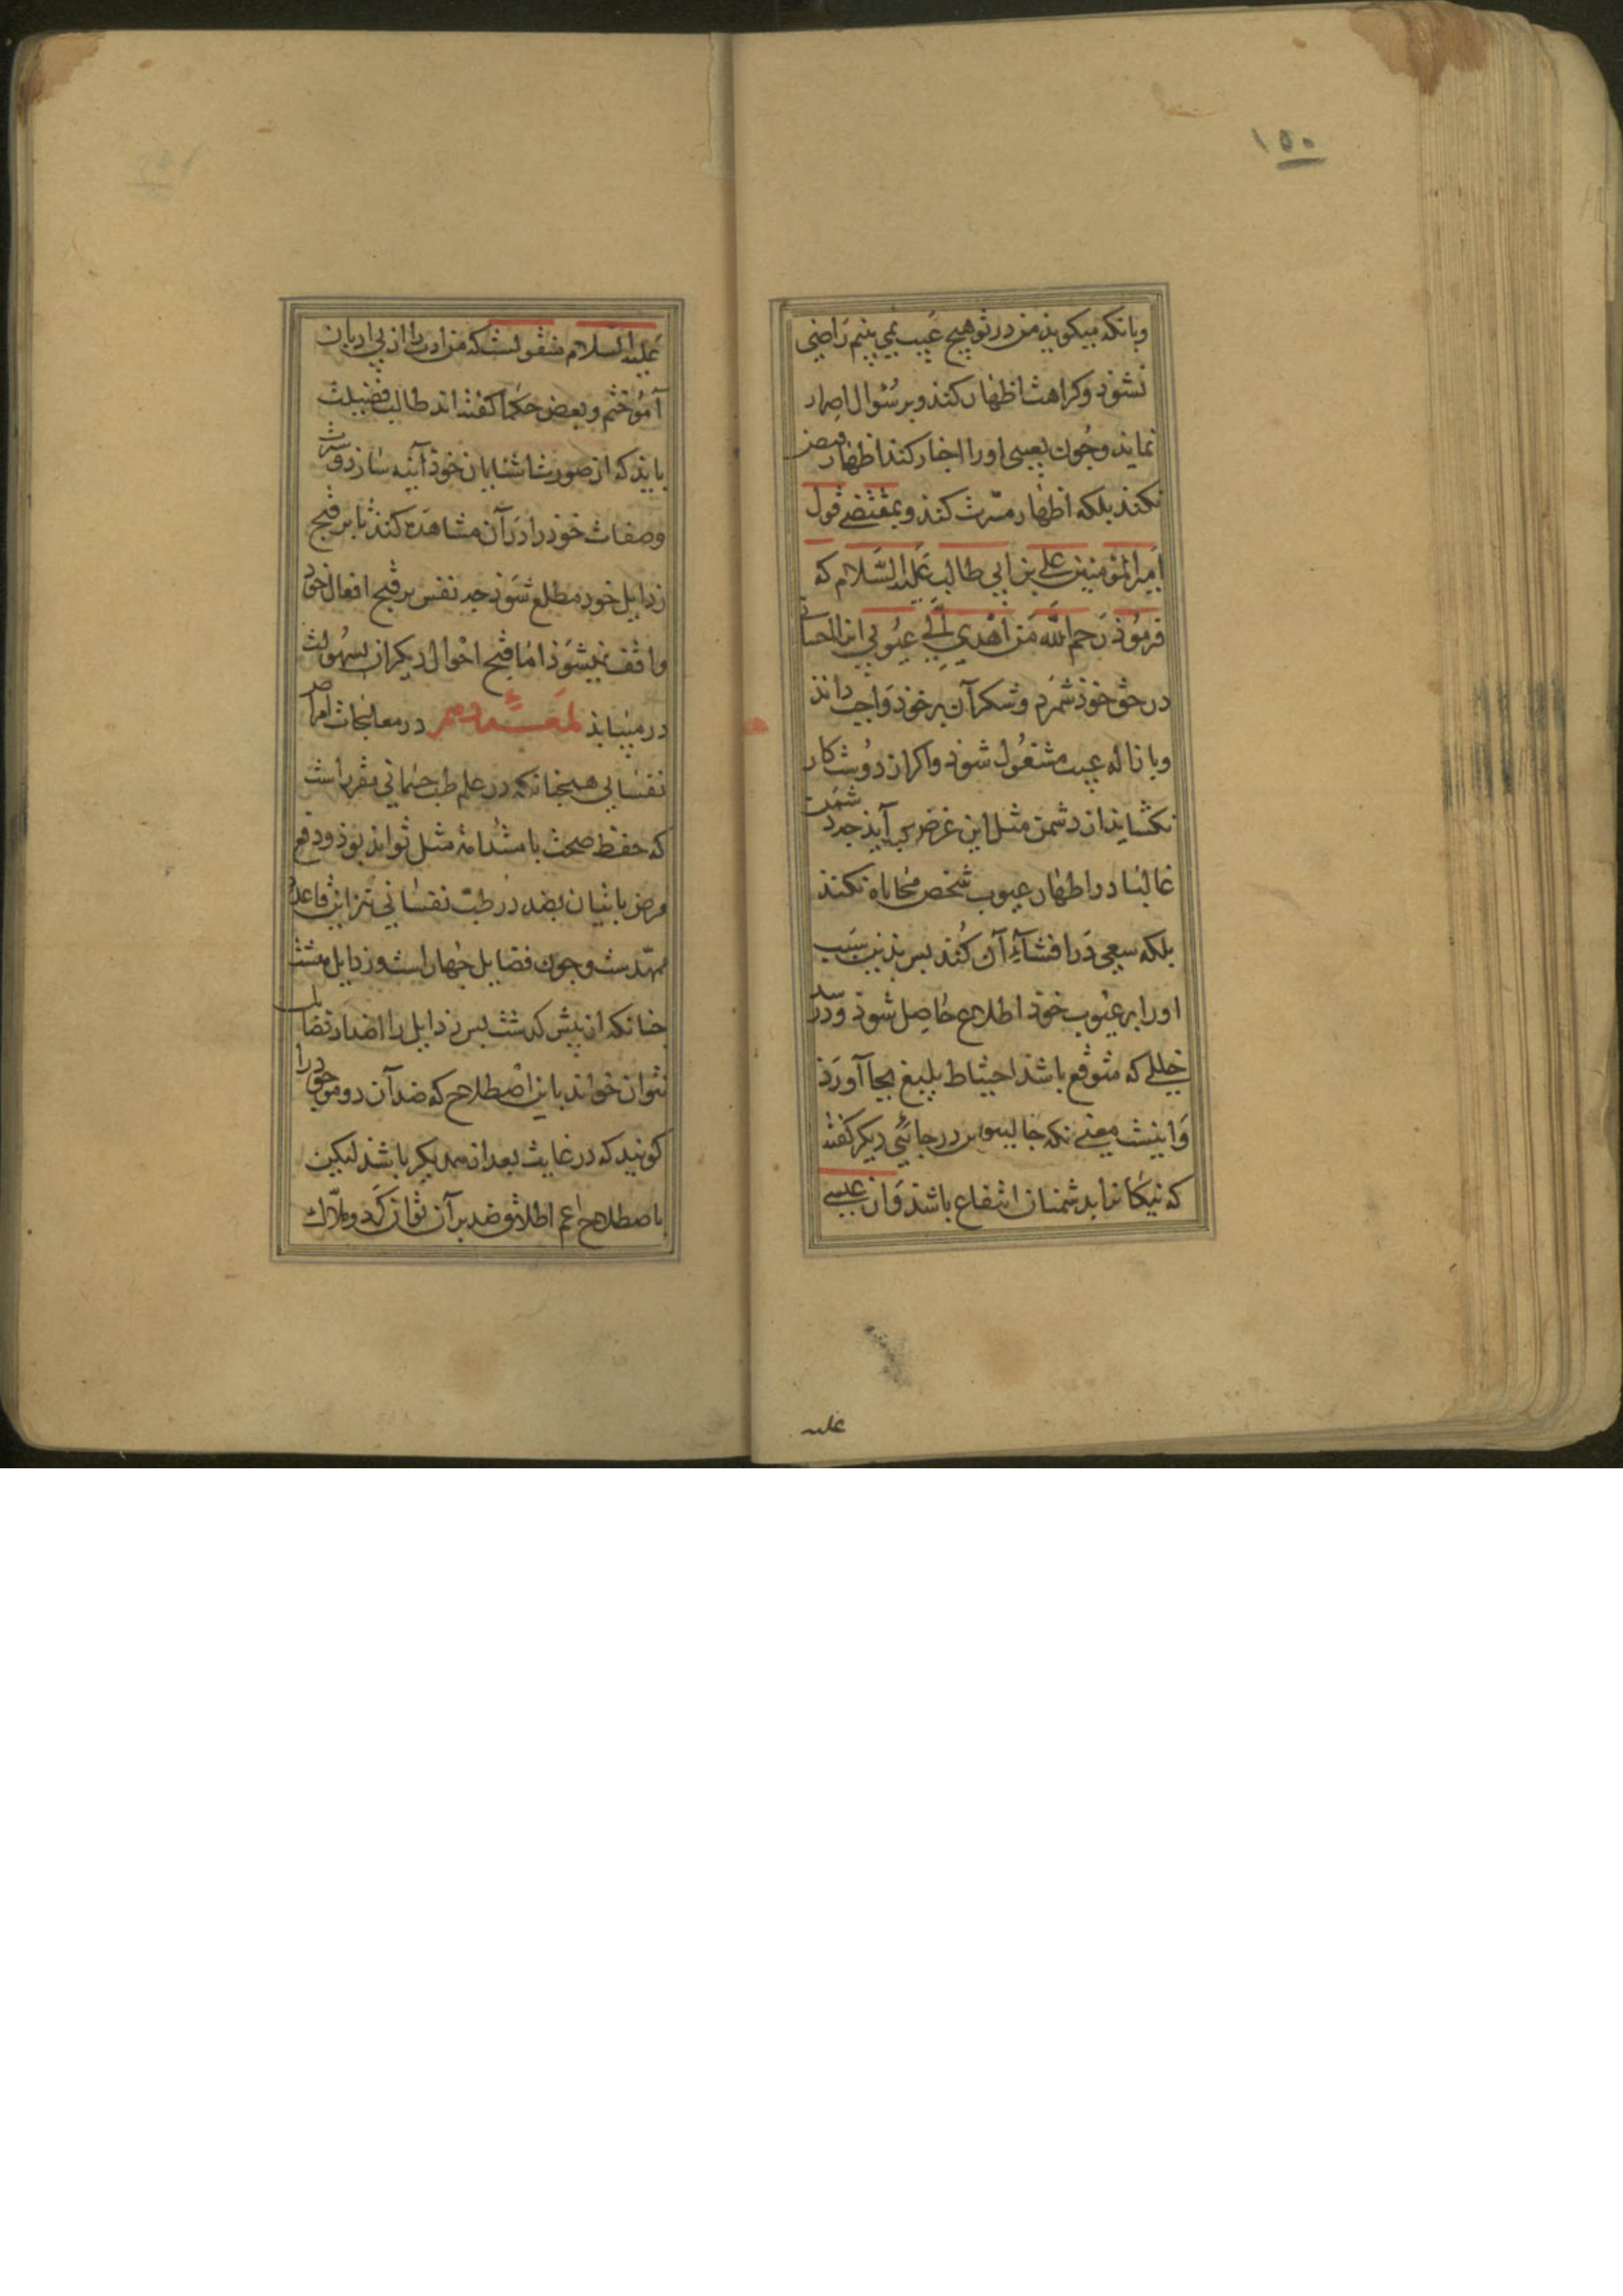 ۱۵۰
وبانکه میکویذ من در تو هیچ عیب نمی بینم راضی
نشوذ وکراهت اظهار کند و بر سؤال اصرار
نماید وجون بعیبی اورا اخبار کند اظهار
نکند بلکه اظهار مسرت کند و بمقتضی قول
امیرالمؤمنین علی بن ابی طالب علیه السلام که
فرموذ رحم الله من اهدی الی عیوبی این را احسانی
در حق خوذ شمرد وشکر آن بر خوذ واجب داند
وبازاله عیب مشغول شوذ واکر از دوست کار
نکشاید از دشمن مثل این غرض برآیذ جه دشمن
غالبا در اظهار عیوب شخص محاباه نکند
بلکه سعی در افشاء آن کند بس بدین سبب
اورا بر عیوب خوذ اطلاع حاصل شوذ ودر سد
خللی که متوقع باشذ احتیاط بلیغ بجا آورذ
واینست معنی نکه جالینوس در جائی دیکر کفته
که نیکانرا بدشمنان انتفاع باشذ واز عیسی
علیه
علیه السلام منقولست که من ادب را از بی ادبان
آموختم وبعض حکما کفته اند طالب فضیلت
بایذ که از صورت اشنایان خوذ آینه سازد
وصفات خوذ را در آن مشاهده کند تا بر قبح
رذایل خود مطلع شوذ جه نفس بر قبح افعال خوذ
واقف نمیشوذ اما قبح احوال دیکران بسهولت
در می یابذ لمعهٔ دهم در معالجات امراض
نفسانی همجنانکه در علم طب جسمانی مقرر است
که حفظ صحت با مثل تواند بوذ ودفع
مرض باتیان بضد در طب نفسانی نیز این قاعده
ممهدست وجون فضایل جهار است ورذایل هشت
جنانکه از بیش کذشت بس رذایل را اضداد فضایل
نتوان خواند باین اصطلاح که ضد آن دو موجود را
کویند که در غایت بعد از یکدیکر باشند لیکن
باصطلاح اعم اطلاق ضد بر آن توان کرد وملاک